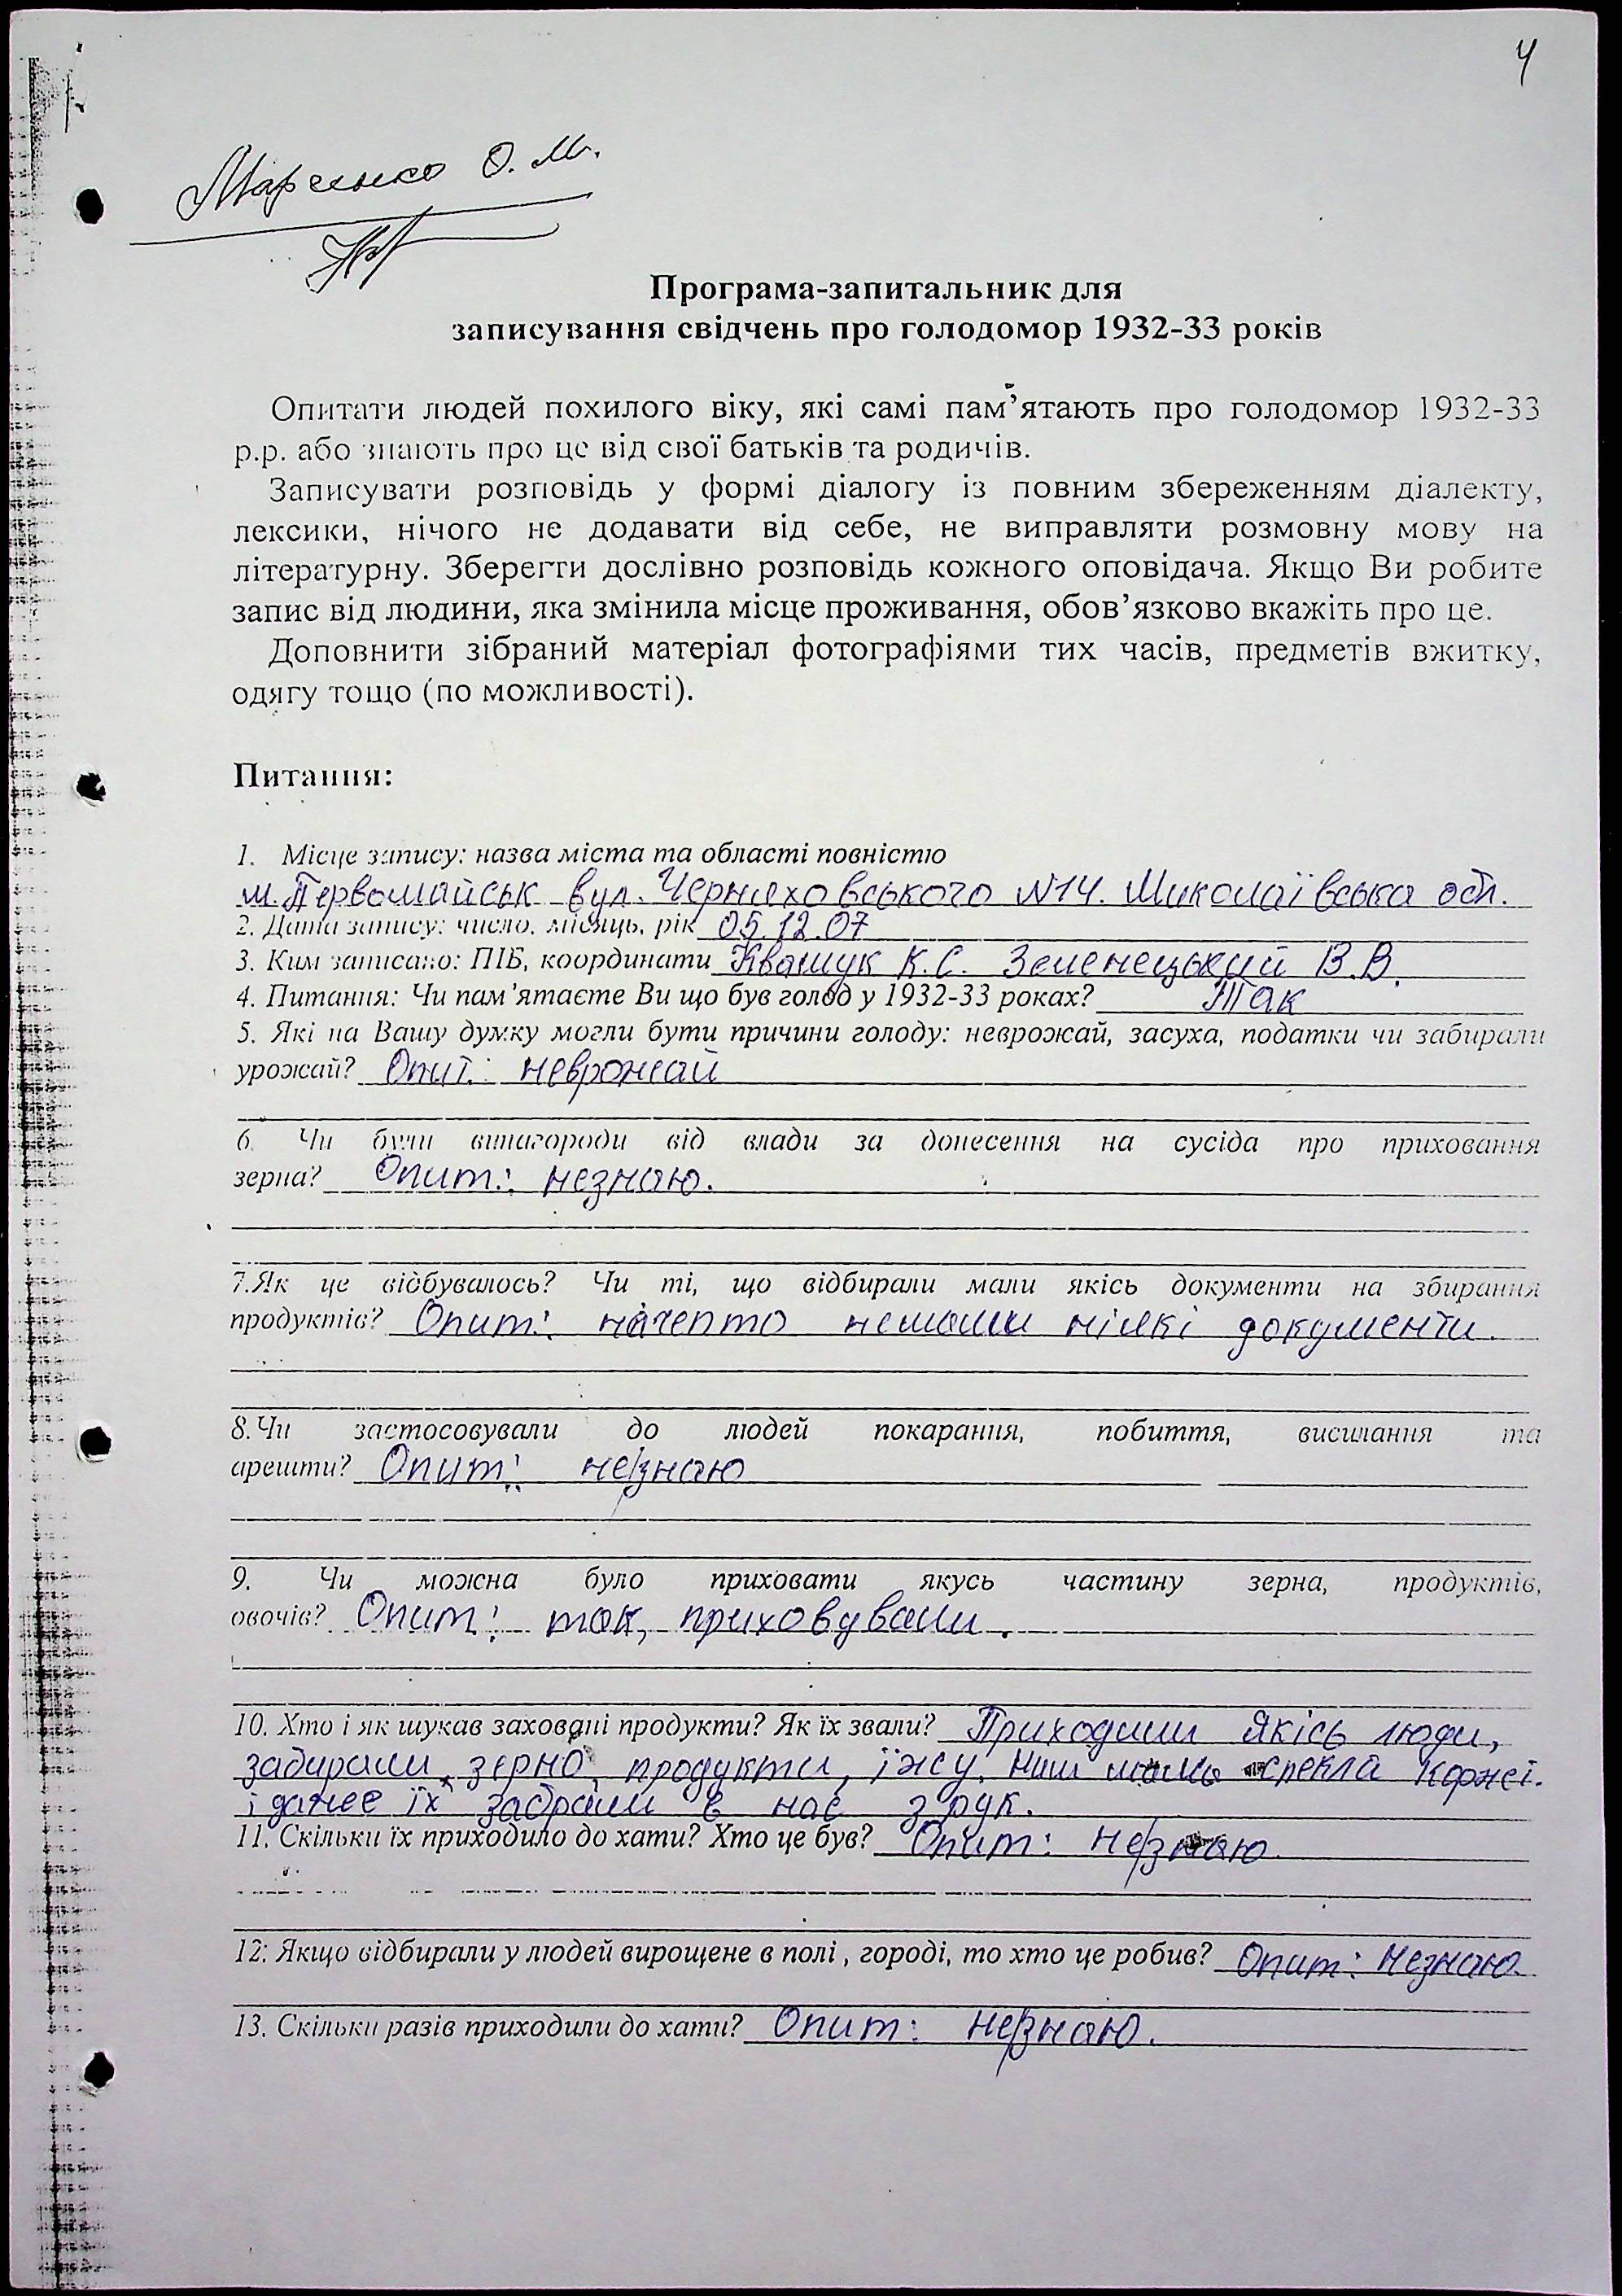 4
Марченко О. М.
Програма-запитальник для
записування свідчень про голодомор 1932-33 років
Опитати людей похилого віку, які самі пам’ятають про голодомор 1932-33
р.р. або знають про це від свої батьків та родичів.
Записувати розповідь у формі діалогу із повним збереженням діалекту,
лексики, нічого не додавати від себе, не виправляти розмовну мову на
літературну. Зберегти дослівно розповідь кожного оповідача. Якщо Ви робите
запис від людини, яка змінила місце проживання, обов’язково вкажіть про це.
Доповнити зібраний матеріал фотографіями тих часів, предметів вжитку,
одягу тощо (по можливості).
Питання:
1. Місце запису: назва міста та області повністю
м. Первомайськ вул. Черняховського №14. Миколаївська обл.
2. Дата запису: число, місяць, рік 05.12.07
3. Ким записано: ПІБ, координати Квашук К.С. Зеленецький В.В.
4. Питання: Чи пам’ятаєте Ви що був голод у 1932-33 роках? Так
5. Які на Вашу думку могли бути причини голоду: неврожай, засуха, податки чи забирали
урожай? Опит: неврожай
6. Чи були винагороди від влади за донесення на сусіда про приховання
зерна? Опит: незнаю.
7.Як це відбувалось? Чи ті, що відбирали мали якісь документи на збирання
продуктів? Опит: начепто немали ніякі документи.
8.Чи застосовували до людей покарання, побиття, висилання та
арешти? Опит: не/знаю
9. Чи можна було приховати якусь частину зерна, продуктів,
овочів? Опит: так, приховували.
10. Хто і як шукав заховані продукти? Як їх звали? Приходили якісь люди,
забирали зерно, продукти, їжу. Наш мама спекла коржі.
і данее їх забрали в нас з рук.
11. Скільки їх приходило до хати? Хто це був? Опит: не/знаю.
12. Якщо відбирали у людей вирощене в полі , городі, то хто це робив? Опит: незнаю.
13. Скільки разів приходили до хати? Опит: не/знаю.